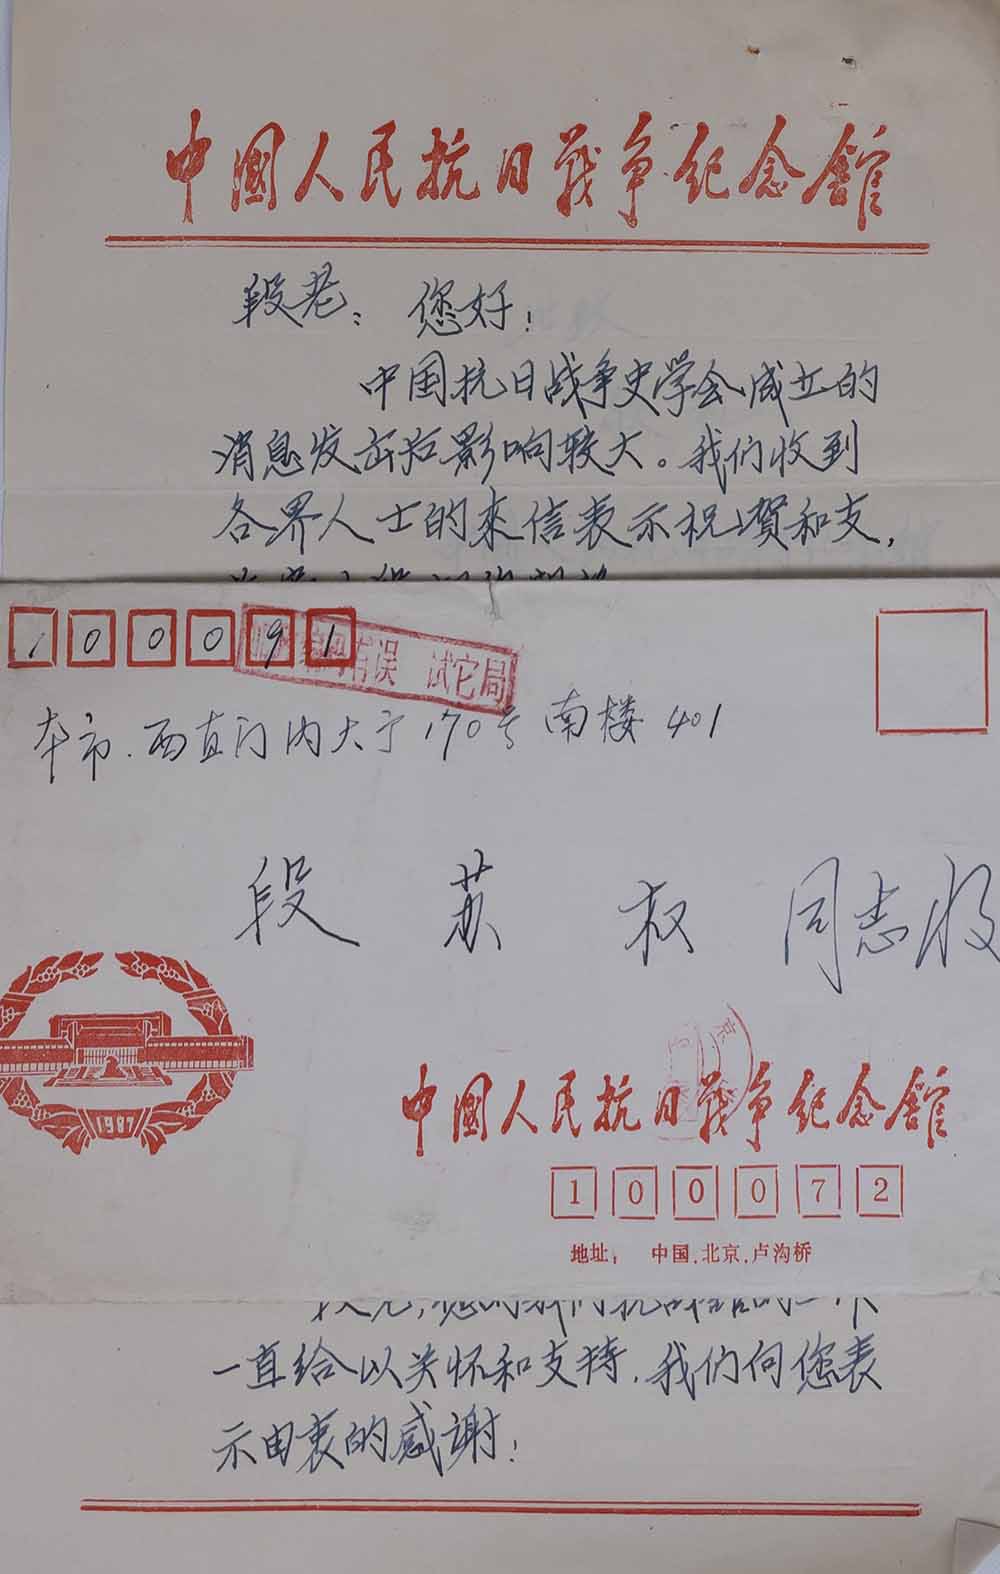 中國人民抗日戰争纪念館
段老：您好！
中国抗日战争史学会成立的
消息发出后影响较大。我们收到
各界人士的来信表示祝贺和支，
100091
编码有误 试它局
本市.西直门内大于170号南楼401
段苏权同志收
1987
中國人民抗日戰争纪念館
100072
地址： 中国.北京.卢沟桥
段老，您对我们抗战馆的工作
一直给以关怀和支持，我们向您表
示由衷的感谢！